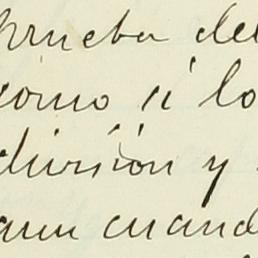 prueba del
como si lo
división y
aun cuand